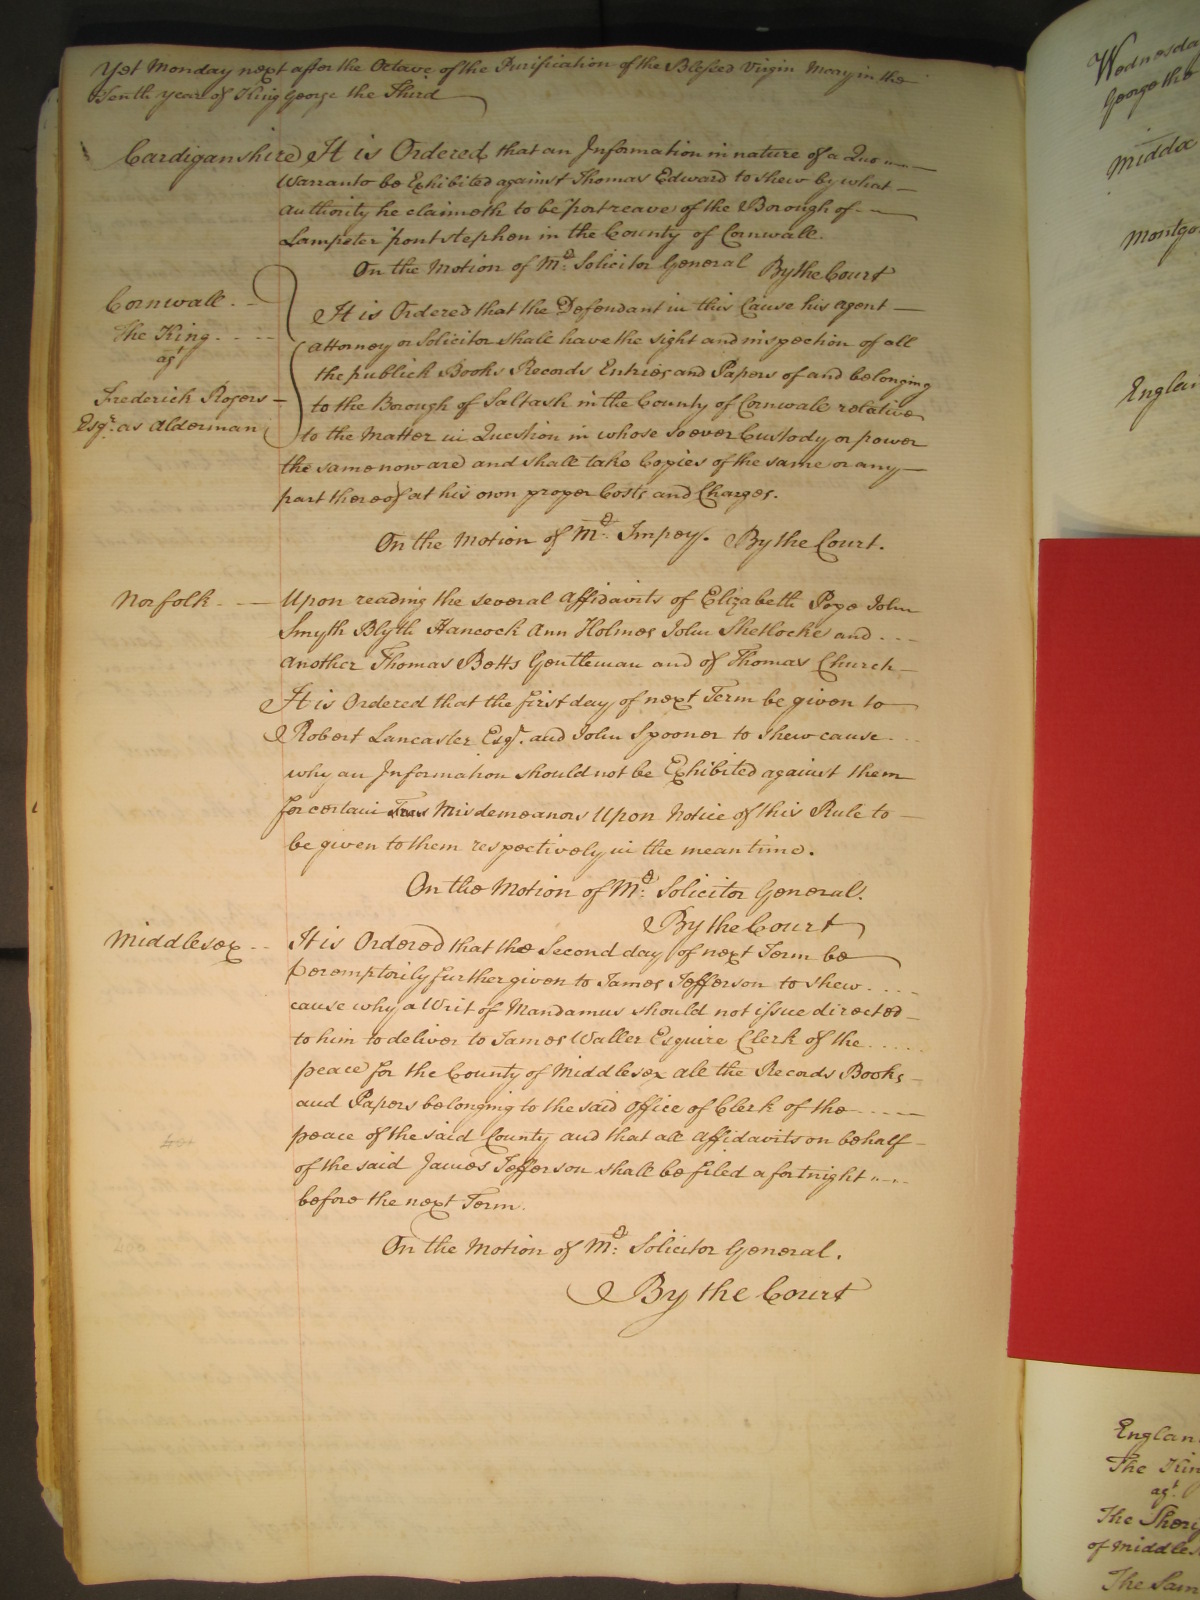 Yet Monday next after the Octave of the Purification of the Blessed Virgin Mary in the
Tenth year of King George the Third
Cardiganshire It is Ordered that an Information in nature of a Quo
Warranto be Exhibited against Thomas Edward to shew by what
authority he claimeth to be portreave of the Borough of
Lampeter pont stephen in the County of Cornwall.
On the Motion of Mr. Solicitor General By the Court
Cornwall.
The King
agt
Frederick Rogers
Esqr. as Alderman
It is Ordered that the Defendant in this Cause his agent
attorney or Solicitor shall have the sight and inspection of all
the publick Books Records Entries and Papers of and belonging
to the Borough of Saltash in the County of Cornwall relative
to the Matter in Question in whose soever Custody or power
the same now are and shall take Copies of the same or any
part thereof at his own proper Costs and Charges.
On the Motion of Mr. Impey. By the Court.
Norfolk Upon reading the several affidavits of Elizabeth Pope John
Smyth Blyth Hancock Ann Holmes John Shetlocke and
another Thomas Betts Gentleman and of Thomas Church
It is Ordered that the first day of next Term be given to
Robert Lancaster Esqr. and John Spooner to shew cause
why an Information should not be Exhibited against them
for certain Misdemeanors Upon Notice of this Rule to
be given to them respectively in the mean time.
On the Motion of Mr. Solicitor General.
By the Court
Middlesex It is Ordered that the Second day of next Term be
peremptorily further given to James Jefferson to shew
cause why a Writ of Mandamus should not issue directed
to him to deliver to James Waller Esquire Clerk of the
peace for the County of Middlesex all the Records Books
and Papers belonging to the said Office of Clerk of the
peace of the said County and that all affidavits on behalf
of the said James Jefferson shall be filed a fortnight
before the next Term.
On the Motion of Mr. Solicitor General.
By the Court
Wednesda
George the
Middx
Montgo
Englan
Englan
The Kin
agt.
The Sheri
of Middle
The Sam